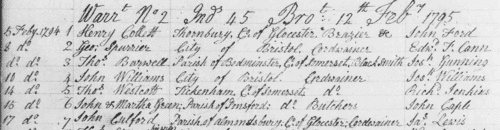 Warr.t No 2 Ind.s 45 Bro.t 12.th Feb.y 1795
5 Feb.y 1794 1 Henry Collett Thornbury, C.o of Glocester Brazier &c John Ford
8 d.o 2 Geo: Spurrier City of Bristol Cordwainer Edw.d T. Cann
d.o d.o 3 Tho.s Barwell Parish of Bedminster, C.o of Somerset, Black Smith Jos: Gunning
10 d.o 4 John Williams City of Bristol Cordwainer Jos: Williams
14 d.o 5 Tho.s Westcott Tickenham, C.o of Somerset d.o Rich.d Jenkins
16 d.o 6 John & Martha Green, Parish of d.o Butchers John Caple
17 d.o 7 John Parish of Almondsbury, C.o of Glocester: Cordwainer Ja.s Lewis